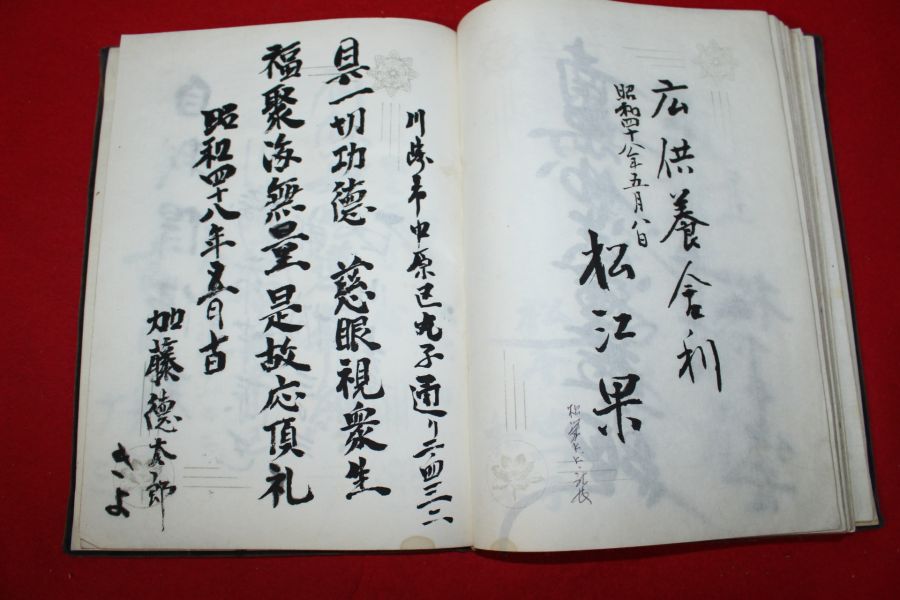 広供養舎利
昭和四十八年五月八日
松江果
川崎市中原区丸子通り二ノ四三二
具一切功徳 慈眼視衆生
福聚海無量 是故応頂礼
昭和四十八年五月十一日
加藤徳太郎
きよ